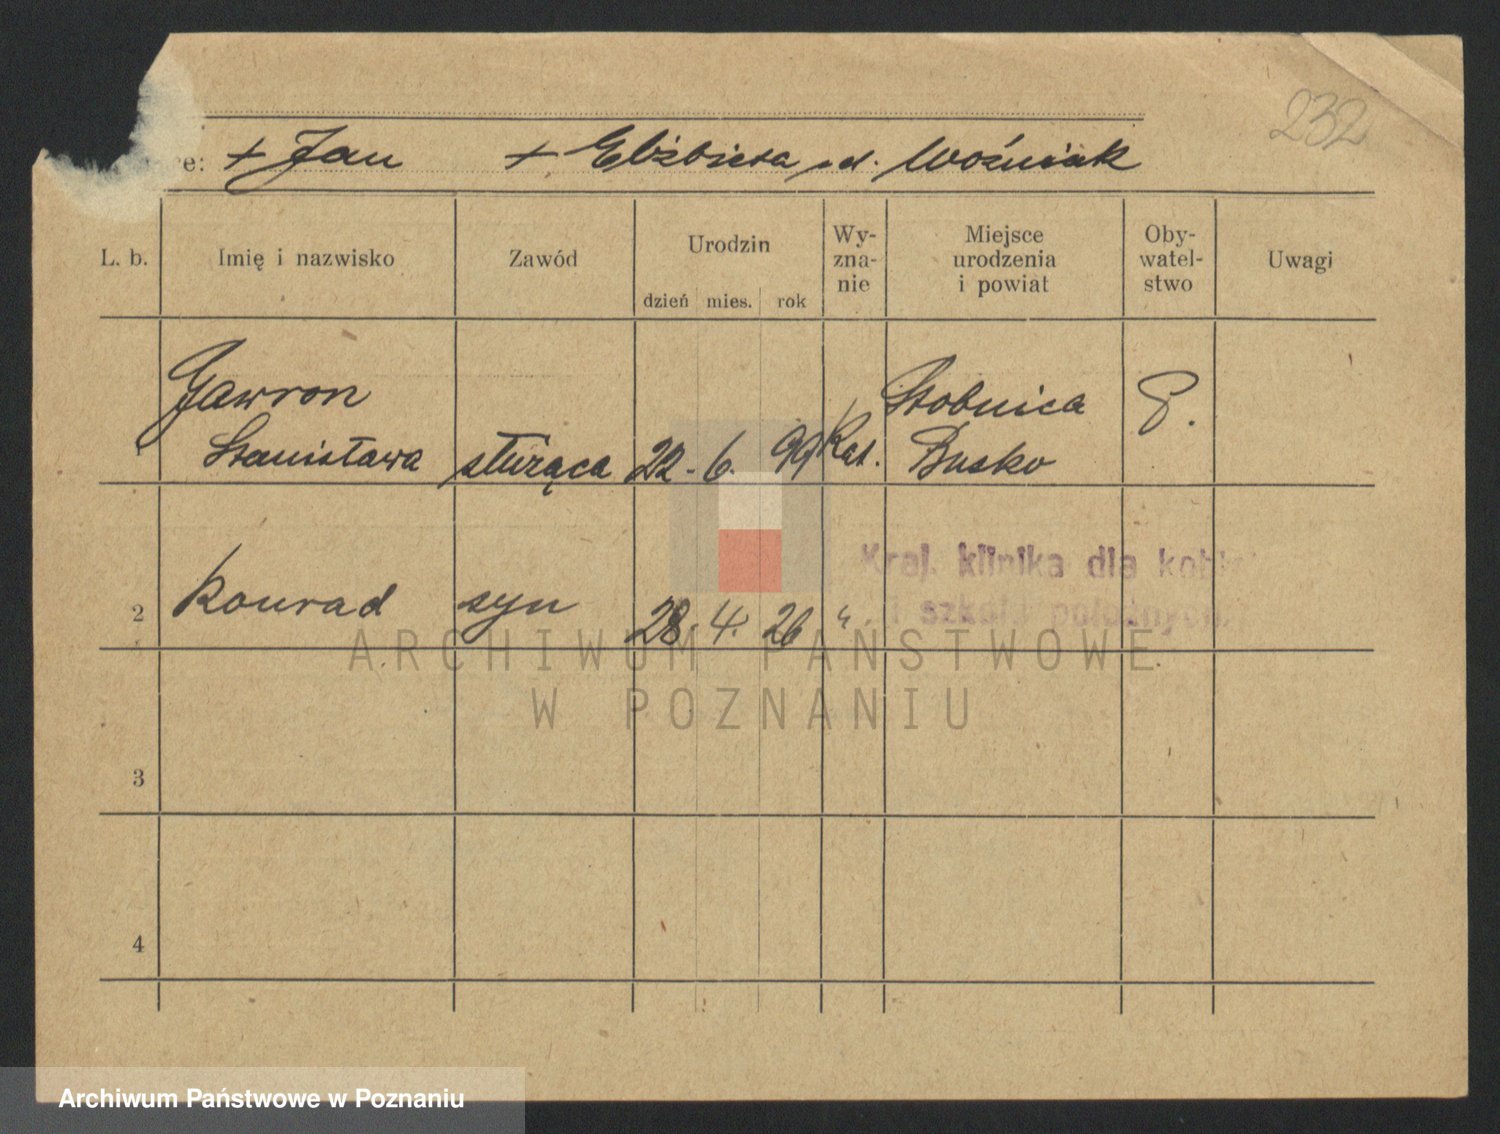 232
re: + Jan + Elżbieta z d. Woźniak
L. b. Imię i nazwisko Zawód Urodzin Wy-zna-nie Miejsce urodzenia i powiat Oby-watel-stwo Uwagi
dzień mies. rok
Gawron Stobnica P.
Stanisława służąca 22. 6. 99 Kat. Busko
Kraj. klinika dla kobiet
i szkoła położnych.
2 Konrad syn 28. 4. 26 "
ARCHIWUM PAŃSTWOWE
W POZNANIU
3
4
Archiwum Państwowe w Poznaniu